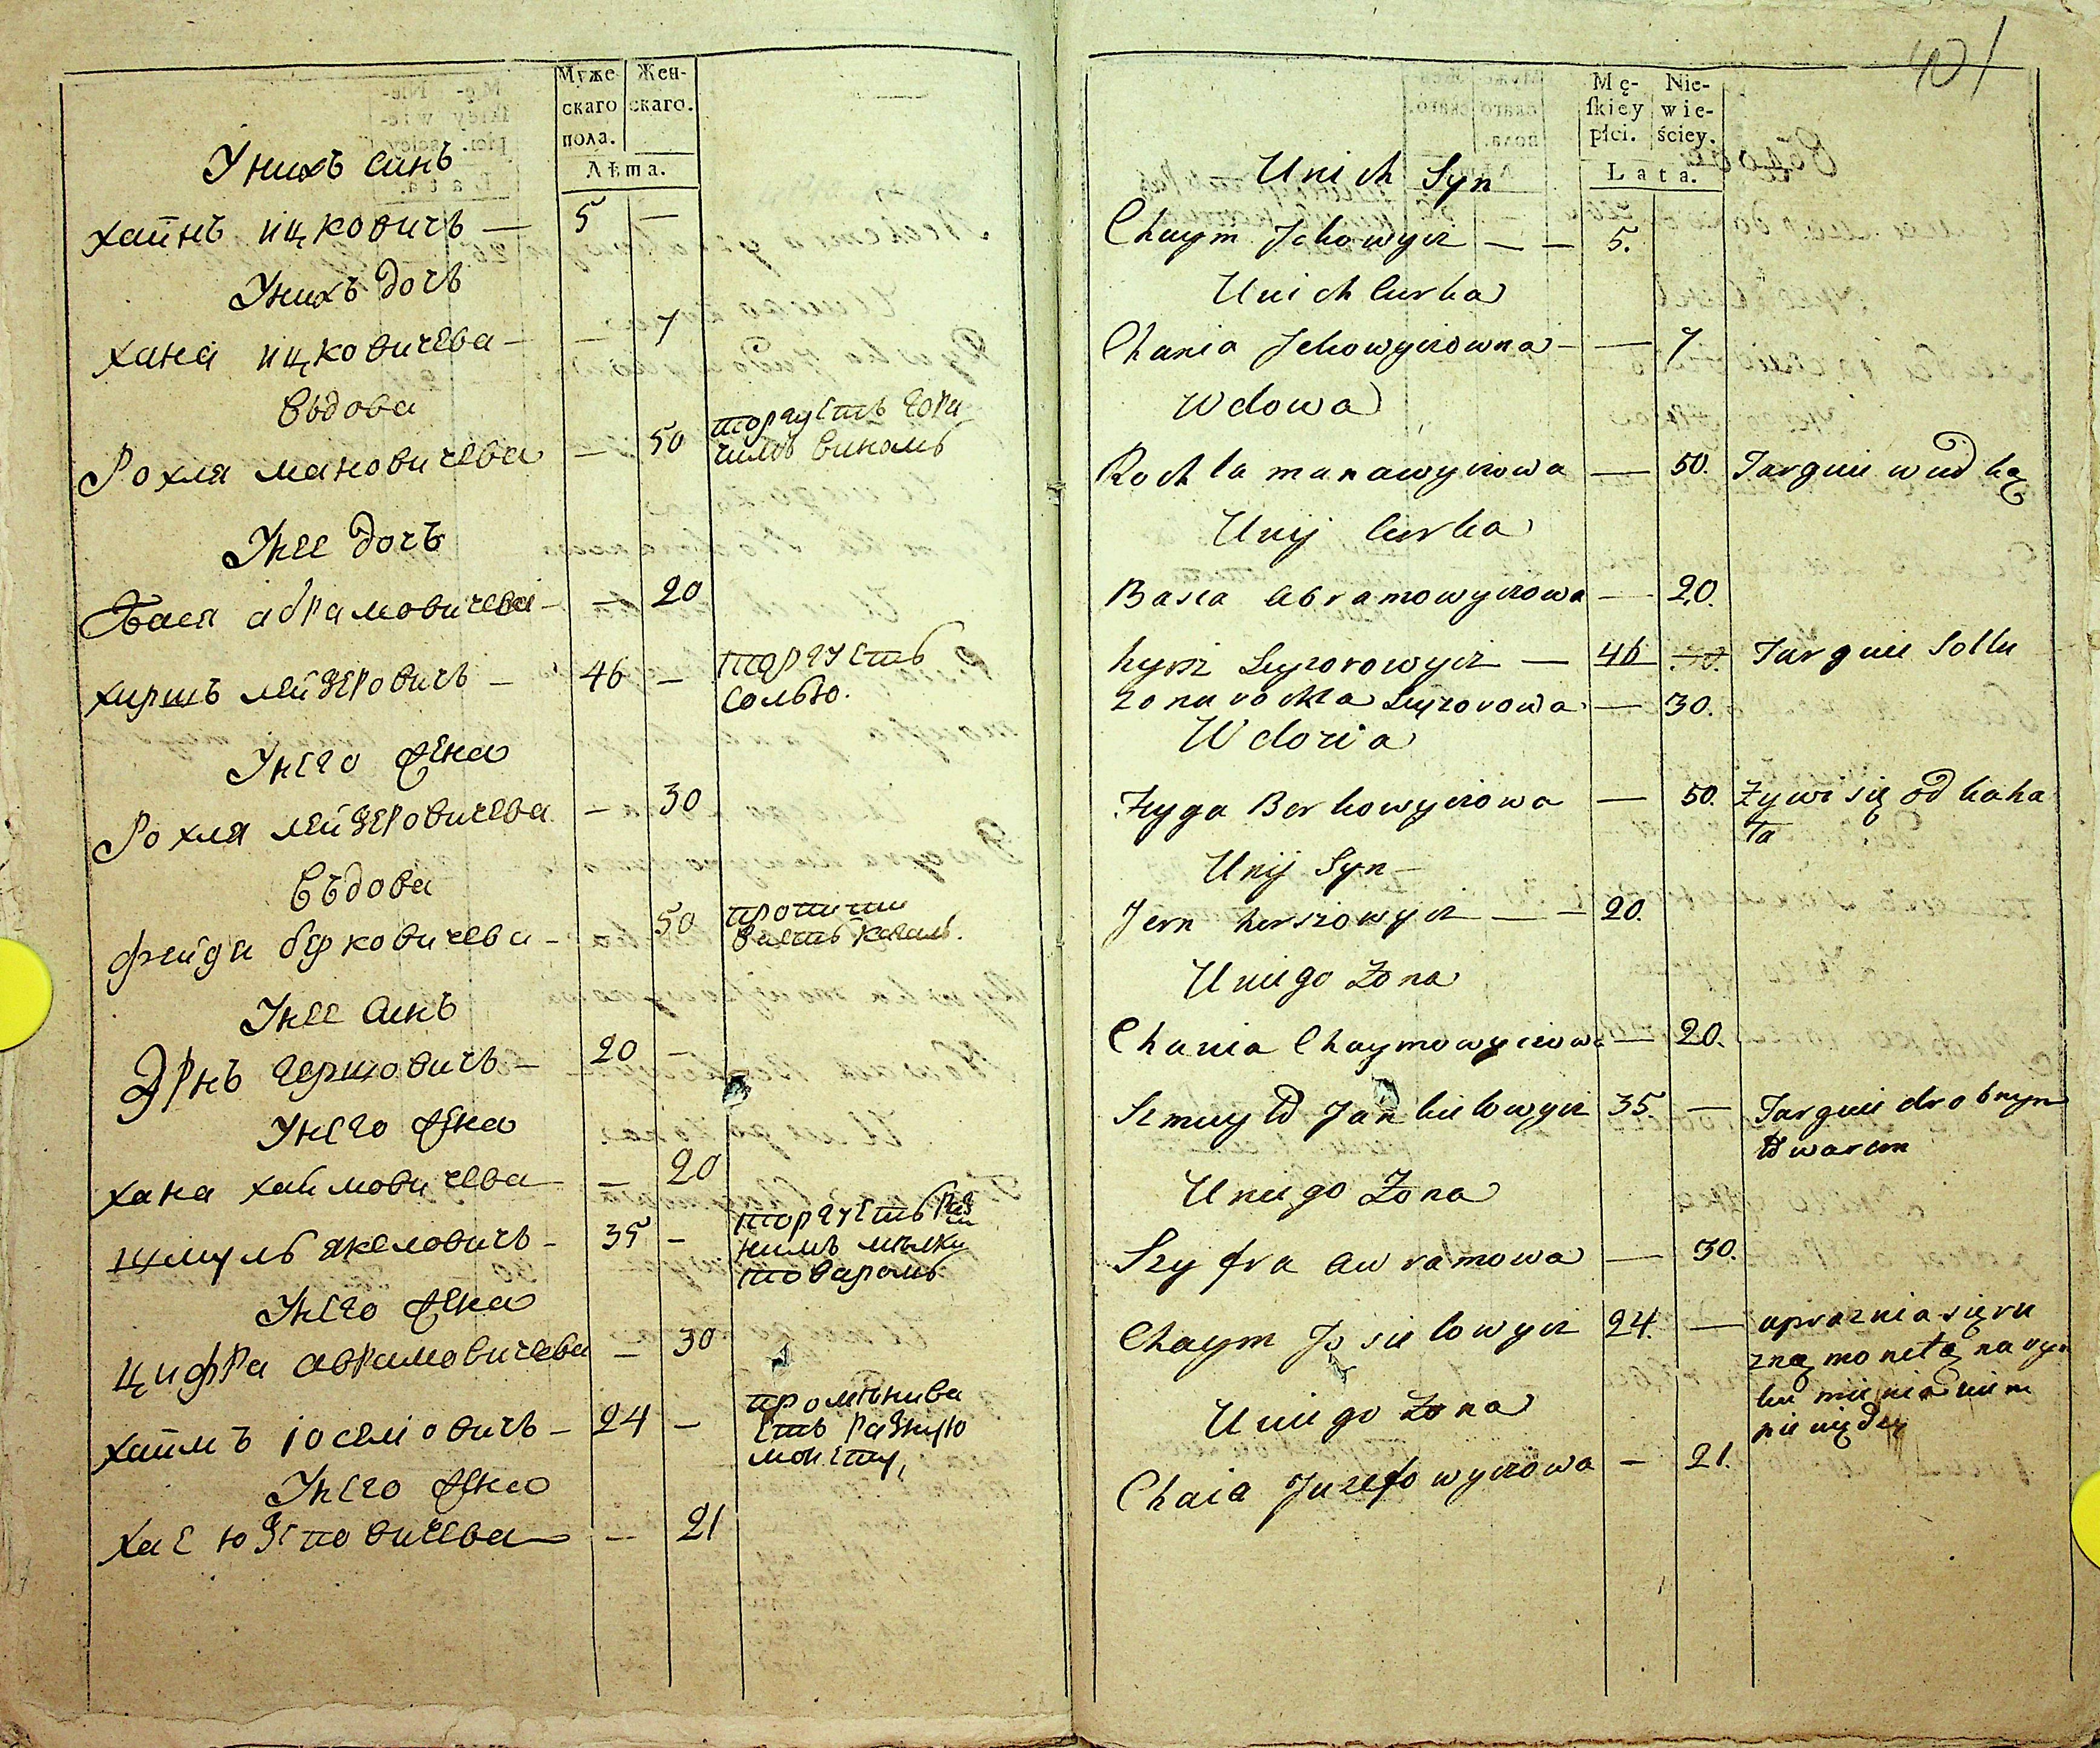 Муже
скаго
пола.
Жен-
скаго.
Лѣта.
Унихъ синъ
хаимъ ицковичъ — 5 —
Унихъ дочъ
хана ицковичева — — 7
Въдова
Рохля мановичева — 50
торгуетъ горя
чимъ виномъ
Унее дочъ
Бася абрамовичева — — 20
хиршъ лейзеровичъ — 46 —
торгуетъ
солью.
Унего жена
Рохля лейзеровичева — 30
Въдова
фейга берковичева — 50
Унее синъ
Эрнъ гершовичъ — 20 —
Унего жена
хана хаимовичева — 20
шмуль якеловичъ — 35 —
торгуетъ раз
нимъ мѣлки
товаромъ
Унего жена
цифра аврамовичева — 30
хаимъ іоселіовичъ — 24 —
промѣнива
етъ разную
монету,
Унего жена
хае юзеповичева — 21
401
Mę-
ſkiey
płci.
Nie-
wie-
ściey.
Lata.
Unich Syn
Chaym Jckowycz — — 5.
Unich Curka
Chania Jckowyczowna — — 7
Wdowa
Rochla manawyczowa — 50. Targuie wud ką
Unij Curka
Basia Abramowyczowa — 20.
hyrsz Leyzorowycz — 46 Targuie Sollu
zona rochla Leyzorowa — 30.
Wdowa
Fyga Berkowyczowa — 50. Żywi się od kaha
ła
Unij Syn —
Jern herszowycz — — 20.
Uniego Zona
Chania Chaymowyczowa — 20.
Szmuyld Jankielowycz 35. — Targuie drobnym
towarem
Uniego Zona
Szyfra Awramowa — 30.
Chaym Josielowycz 24. — upraznia się ru
zną monetą na ryn
ku mienianiem
pieniędzy
Uniego Zona
Chaia Juzefowyczowa — 21.